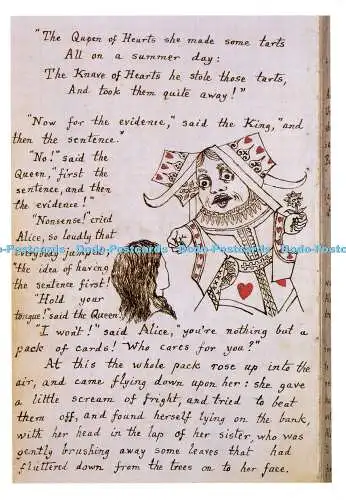 "The Queen of Hearts she made some tarts
All on a summer day:
The Knave of Hearts he stole those tarts,
And took them quite away!"
"Now for the evidence," said the King, "and
then the sentence."
"No!" said the
Queen, "first the
sentence, and then
the evidence!"
"Nonsense!" cried
Alice, so loudly that
everybody jumped,
"the idea of having
the sentence first!"
"Hold your
tongue!" said the Queen.
"I won't!" said Alice, "you're nothing but a
pack of cards! Who cares for you?"
At this the whole pack rose up into the
air, and came flying down upon her: she gave
a little scream of fright, and tried to beat
them off, and found herself lying on the bank,
with her head in the lap of her sister, who was
gently brushing away some leaves that had
fluttered down from the trees on to her face.
Dodo-Postcards